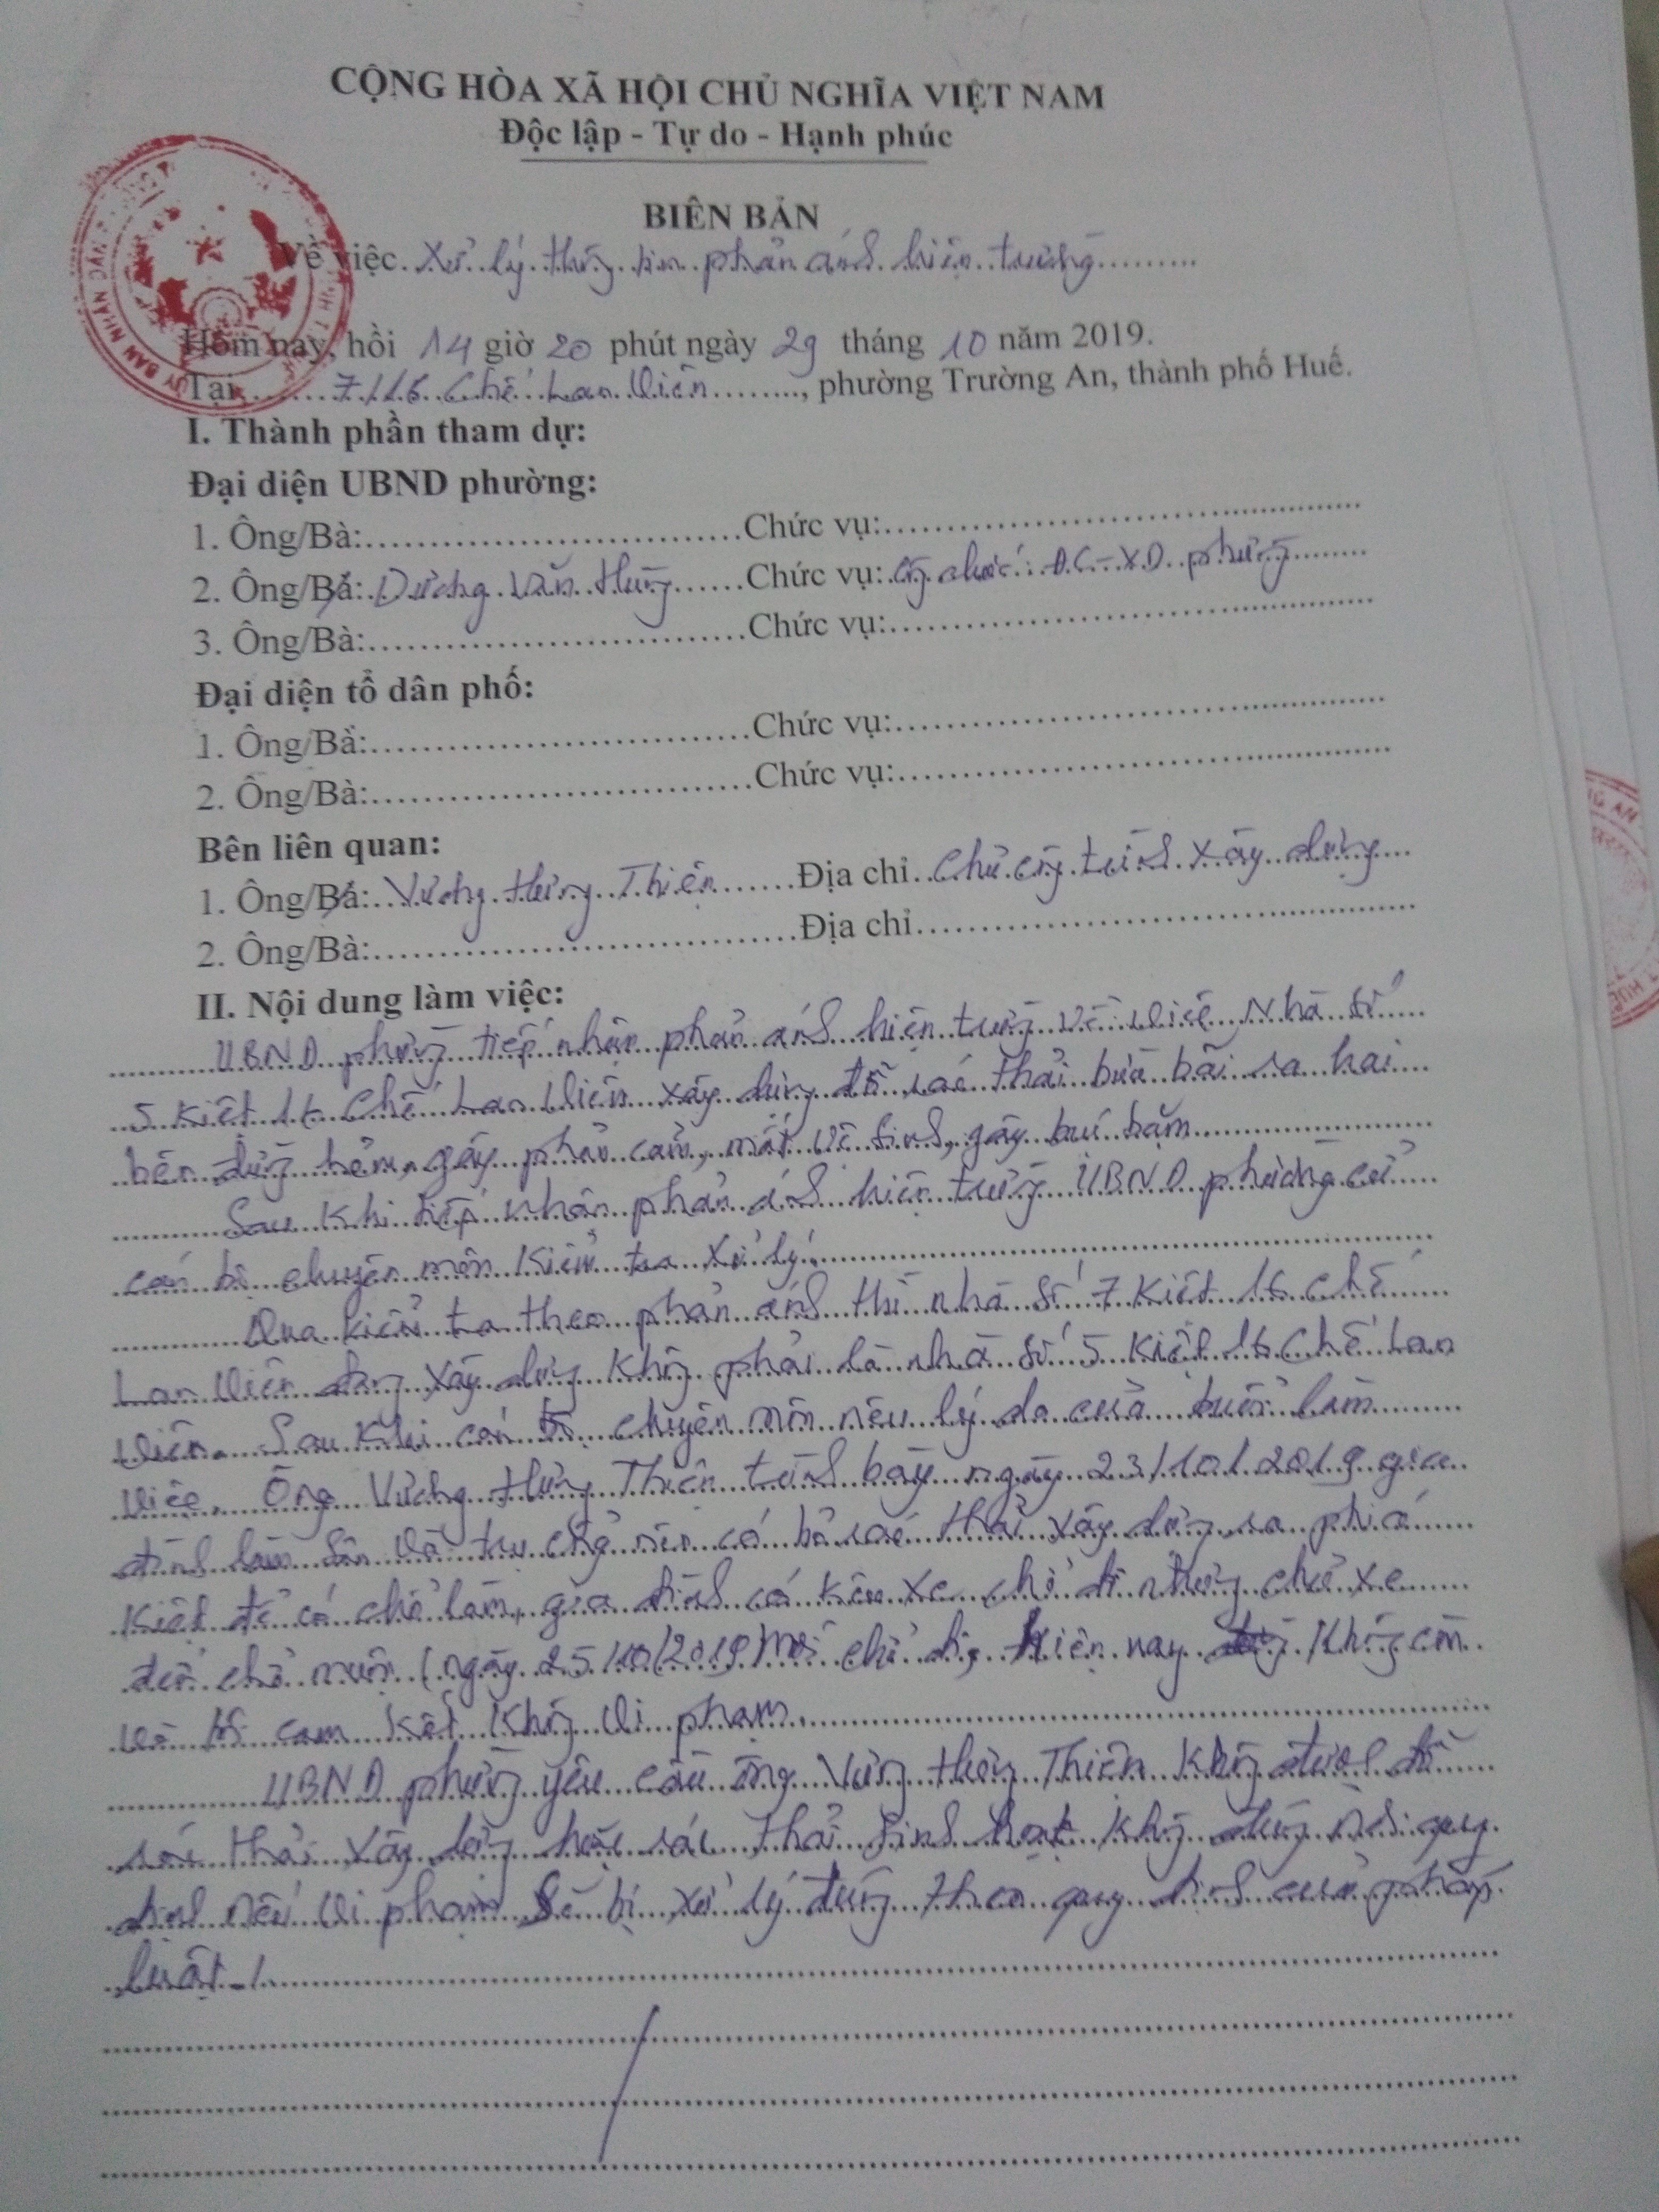 CỘNG HÒA XÃ HỘI CHỦ NGHĨA VIỆT NAM
Độc lập - Tự do - Hạnh phúc
BIÊN BẢN
Về việc. Xử lý thông tin phản ánh hiện trường
Hôm nay, hồi 14 giờ 20 phút ngày 29 tháng 10 năm 2019.
Tại 7/16 Chế Lan Viên, phường Trường An, thành phố Huế.
I. Thành phần tham dự:
Đại diện UBND phường:
1. Ông/Bà: Chức vụ:
2. Ông/Bà: Dương Văn Hùng Chức vụ: Công chức ĐC-XD phường
3. Ông/Bà: Chức vụ:
Đại diện tổ dân phố:
1. Ông/Bà: Chức vụ:
2. Ông/Bà: Chức vụ:
Bên liên quan:
1. Ông/Bà: Vương Hưng Thiện Địa chỉ Chủ công trình xây dựng
2. Ông/Bà: Địa chỉ
II. Nội dung làm việc:
UBND phường tiếp nhận phản ánh hiện trường về việc Nhà số
5 Kiệt 16 Chế Lan Viên xây dựng đổ rác thải bừa bãi ra hai
bên đường hẻm, gây phản cảm, mất vệ sinh, gây bụi bặm
Sau khi tiếp nhận phản ánh hiện trường UBND phường cử
cán bộ chuyên môn kiểm tra xử lý.
Qua kiểm tra theo phản ánh thì nhà số 7 Kiệt 16 Chế
Lan Viên đang xây dựng không phải là nhà số 5 Kiệt 16 Chế Lan
Viên. Sau khi cán bộ chuyên môn nêu lý do của buổi làm
việc, Ông Vương Hưng Thiện trình bày ngày 23/10/2019 gia
đình làm sân và trụ cổng nên có bỏ rác thải xây dựng ra phía
Kiệt để có chỗ làm, gia đình có kêu xe chở đi nhưng chủ xe
đến chở muộn (ngày 25/10/2019 mới chở đi, Hiện nay không còn
và tôi cam kết không vi phạm.
UBND phường yêu cầu ông Vương Hưng Thiện không được đổ
rác thải xây dựng hoặc rác thải sinh hoạt không đúng nơi quy
định nếu vi phạm sẽ bị xử lý đúng theo quy định của pháp
luật./.